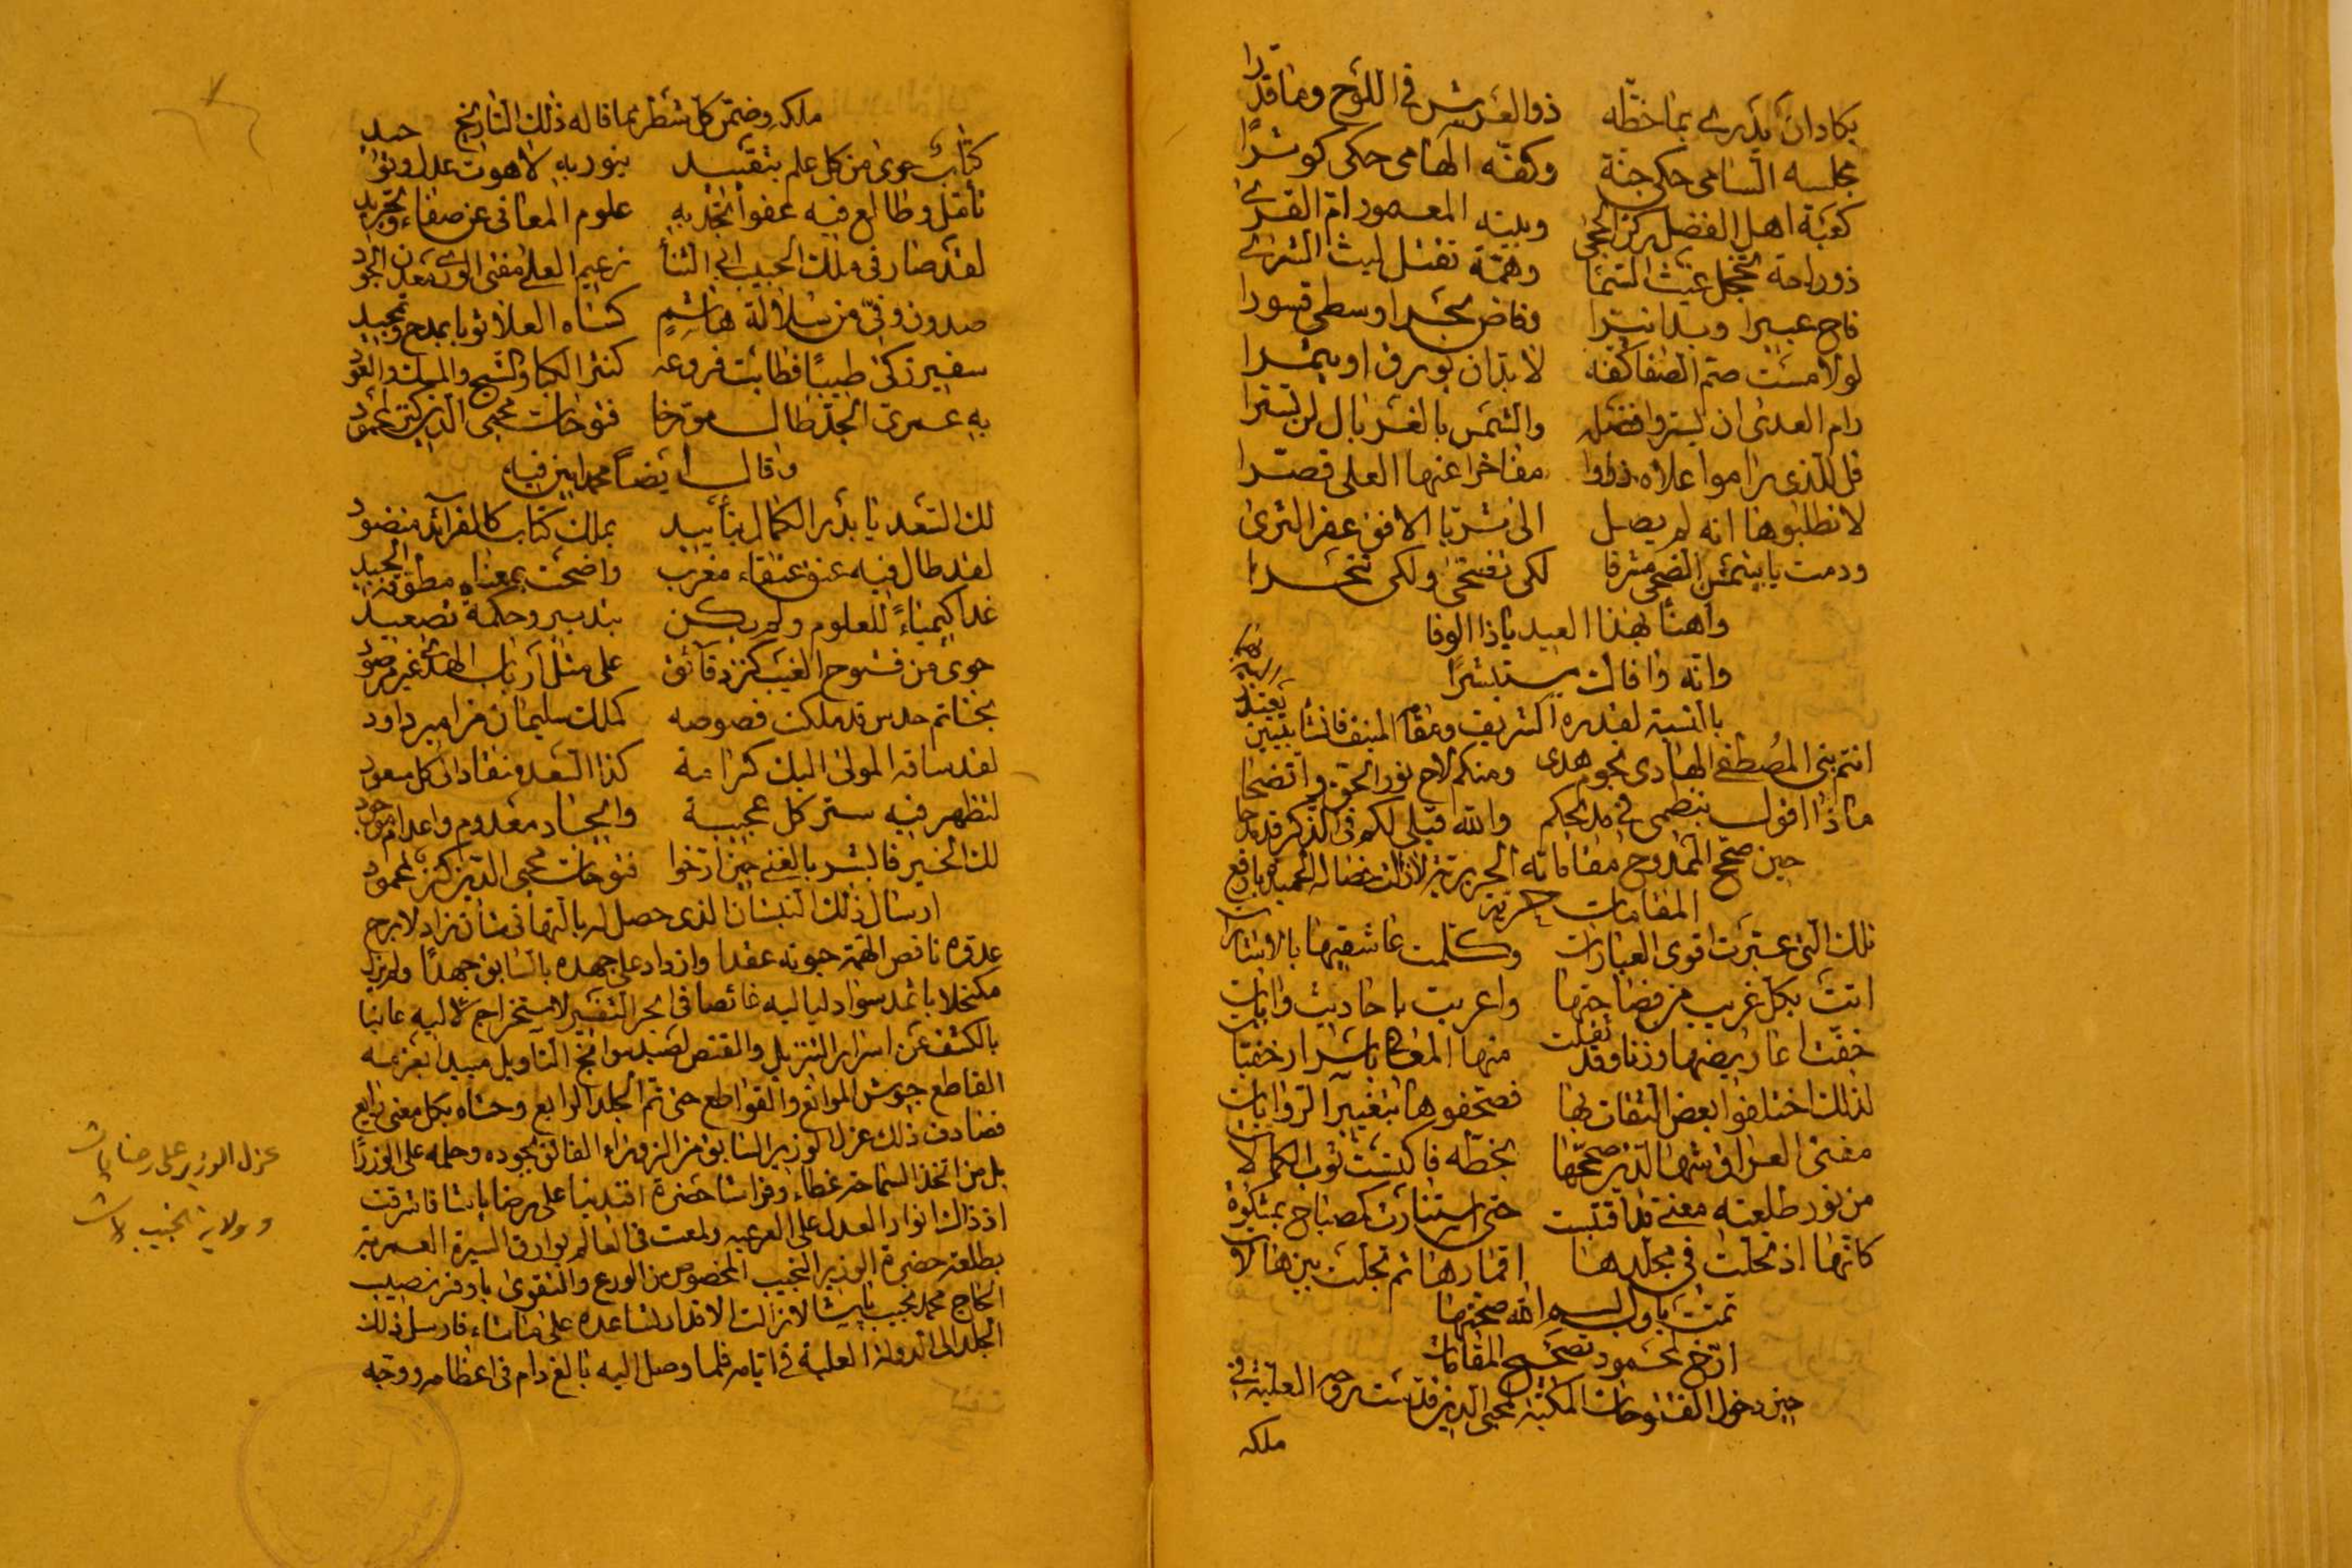 يكاد ان يدري بما خطّه ذو العرش في اللوح وما قدّرا
مجلسه السامي حكى جنة وكفّه الهامي حكى كوثرا
كعبة اهل الفضل ركن الحجى وبيته المعمور امّ القرى
ذو راحة تخجل غيث السما وهمّة تقتل ليث الشرى
فاح عبيرا وبدا نيّرا وفاض بحرا وسطى قسورا
لو لامست صمّ الصفا كفّه لا بدّ ان تورق او تثمرا
رام العدى ان يستروا فضله والشمس بالغربال لن تسترا
قل للذي راموا علاه ذروا مفاخرا عنها العلى قصّرا
لا تطلبوها انه لم يصل الى ثريّا الافق عفر الثرى
ودمت يا شمس الضحى مشرقا لكي تضحّي ولكي تنحرا
واهنأ بهذا العيد يا ذا الوفا
وانّه وافاك مستبشرا
بالنسبة لقدره الشريف ومقامه المنيف فانشأ بيتين
انتم بني المصطفى الهادي نجوم هدى ومنكم لاح نور الحق واتضحا
ماذا اقول بنظمي في مديحكم والله قبلي لكم في الذكر قد مدحا
حين صحّح الممدوح مقاماته الحريرية لا زالت خصاله الحميدة بارفع
المقامات حرية
تلك التي عبّرت اقوى العبارات وكلّمت عاشقيها بالاشارات
اتت بكل غريب من فصاحتها واعربت باحاديث وايات
خفّت اعاريضها وزنا وقد ثقلت منها المعاني باسرار خفيّات
لذلك اختلفوا بعض الثقات بها فصحّفوها بتغيير الروايات
مفتي العراق شهاب الدين صحّحها بخطّه فاكتست ثوب الكمالات
من نور طلعته معنى قد اقتبست حتى استنارت كمصباح بمشكوة
كانها اذ تحلّت في مجلدها اقمارها ثم تجلّت بين هالات
تمّت باول بسم الله صحّتها
ارّخ لمحمود تصحيح المقامات
حين دخول الفتوحات المكية لمحيي الدين قدّست روحه العليّة في
ملكه
ملكه وضمّن كل شطر مما قاله ذلك التاريخ
كتاب حوى من كل علم بتقييد بنور به لاهوت عدل وتوحيد
تأمّل وطالع فيه عفوا تجد به علوم المعاني عن صفاء وتجريد
لقد صار في ملك الحبيب ابي الثنا زعيم العلى مفتي الورى معدن الجود
صدوق وفيّ من سلالة هاشم كساه العلا ثوبا بمدح وتمجيد
سفير زكى طيبا فطابت فروعه كنشر الكبا والشيح والمسك والعود
به عمريّ الجدّ طال مورّخا فتوحات محيي الدين كنز لمحمود
وقال ايضا محمد امين فيه
لك السعد يا بدر الكمال بتأييد بملك كتاب كالفرائد منضود
لقد طال فيه عنق عنقاء مغرب واضحت بمعناه مطوّقة الجيد
غدا كيمياء للعلوم ولم يكن بتدبير وحكمة تصعيد
حوى من فتوح الغيب كنز دقائق على مثل ارباب الهدى غير مرصود
بخاتم حدس قد ملكت فصوصه كملك سليمان مزامير داود
لقد ساقه المولى اليك كرامة كذا السعد منقاد الى كل مسعود
لتظهر فيه ستر كل عجيبة وايجاد معدوم واعدام موجود
لك الخير فابشر بالغنى حين ارّخوا فتوحات محيي الدين كنز لمحمود
ارسال ذلك النيشان الذي حصل له بالتهاني شان زاد لا برح
عدوّه ناقص الهمّة حبوته عقدا وازداد على جهده بالسابق جهدا ولم يزل
مكتحلا باثمد سواد لياليه غائصا في بحر التفسير لاستخراج لآليه عانيا
بالكشف عن اسرار التنزيل والقنص لصيد سوانح التأويل مبيدا بعزمه
القاطع جيوش الموانع والقواطع حتى تمّ الجلد الرابع وحشاه بكل معنى رايع
فصادف ذلك عزل الوزير السابق من الزوراء الفائق بجوده وحلمه على الوزرا
بل من اتخذ السماحة غطاء وفراشا حضرة افندينا علي رضا باشا فاشرقت
اذ ذاك انوار العدل على الرعيه ولمعت في العالم بوارق السيرة العمرية
بطلعة حضرة الوزير النجيب المخصوص من الورع والتقوى باوفر نصيب
الحاج محمد نجيب باشا لا زالت الاقدار تساعده على ما شاء فارسل ذلك
الجلد الى الدولة العلية في ايامه فلما وصل اليه بالغ دام في اعظامه ووجّه
عزل الوزير علي رضا پاشا
وولاية نجيب پاشا